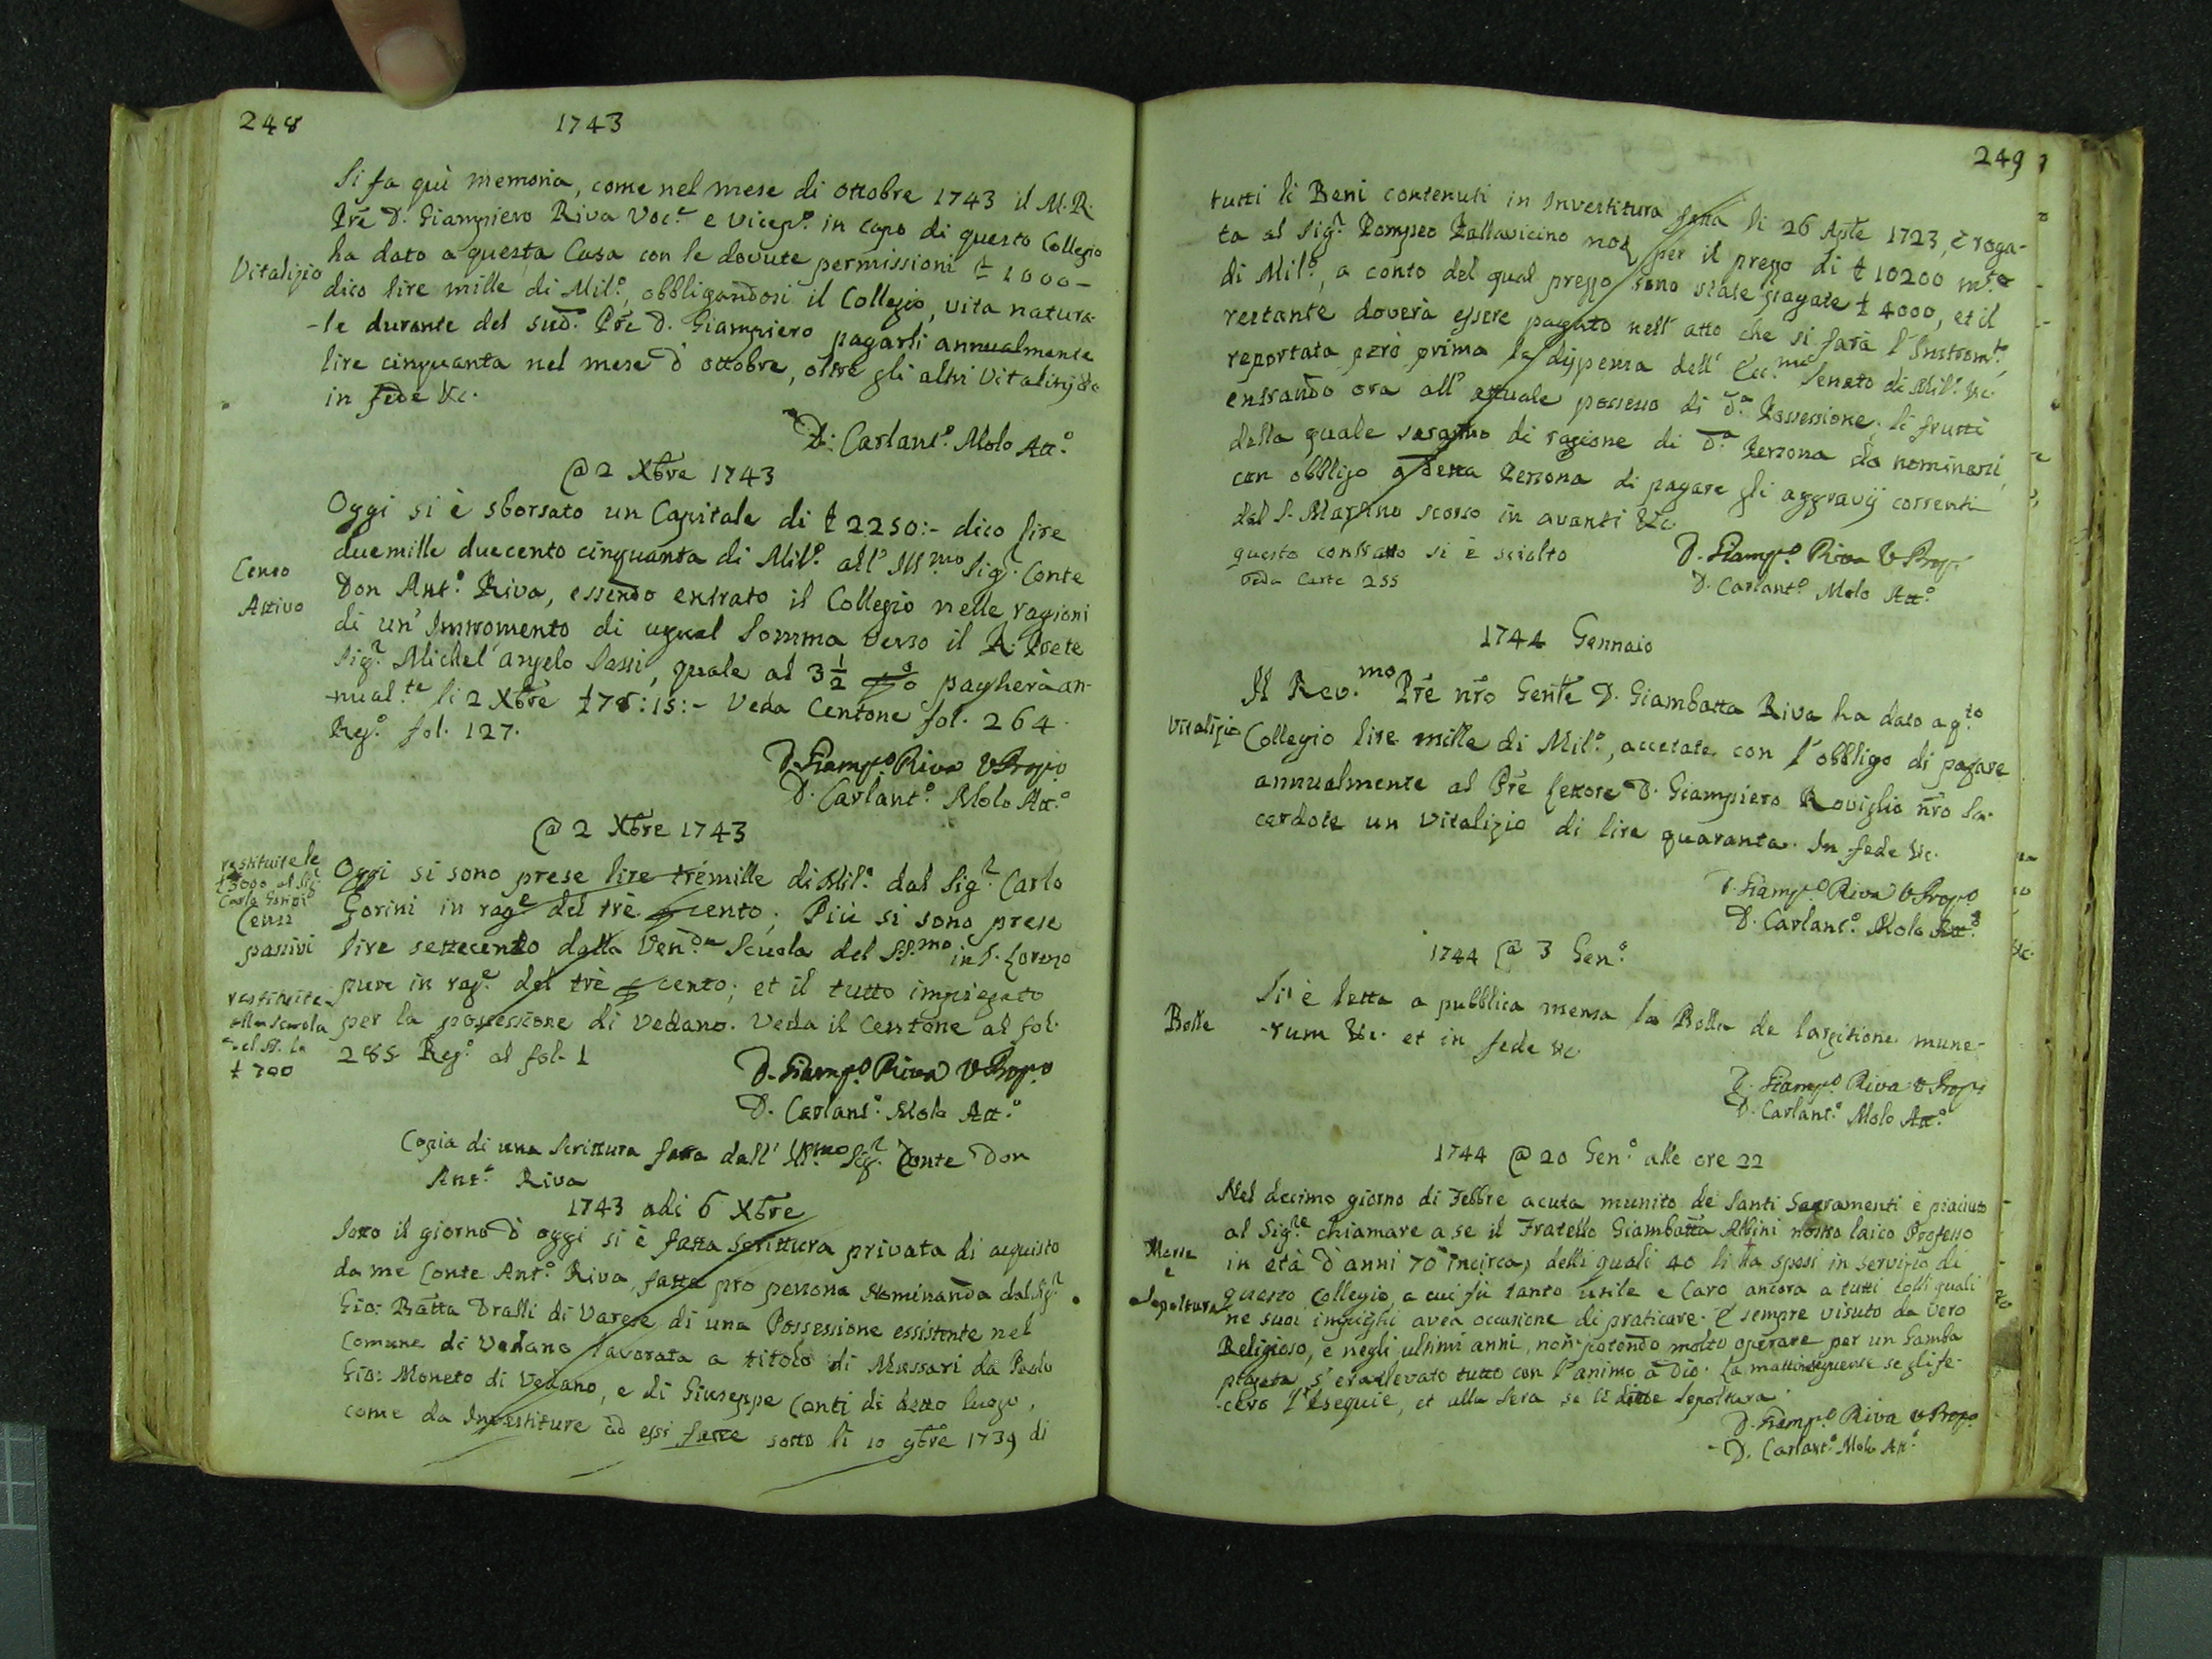 248
1743
Si fa quì memoria, come nel mese di Ottobre 1743 il M. R.
Prẽ D. Giampiero Riva Voc.e e Vicep.o in capo di questo Collegio
ha dato a questa Casa con le dovute permissioni ₤ 1000 -
Vitalizio
dico lire mille di Mil.o, obbligandosi il Collegio, vita natura-
-le durante del sud.o Prẽ D. Giampiero pagarli annualmente
lire cinquanta nel mese d'ottobre, oltre gli altri Vitalizij &c
in fede &c.
D. Carlant.o Molo Att.o
@ 2 Xbre 1743
Oggi si è sborsato un Capitale di ₤ 2250:- dico lire
duemille duecento cinquanta di Mil.o all' Ill.mo Sig.r Conte
Censo
Attivo
Don Ant.o Riva, essendo entrato il Collegio nelle ragioni
di un' Instromento di ugual Somma verso il R. Prete
Sig.r Michel'angelo Sassi, quale al 3 1/2 p % pagherà an-
-nual.te li 2 Xbre ₤ 78:15:- Veda Centone fol. 264.
Reg.o fol. 127.
D. Giamp.o Riva VPrep.o
D. Carlant.o Molo Att.o
@ 2 Xbre 1743
restituite le
₤ 3000 al Sig.r
Carlo Gorini
Censi
passivi
Oggi si sono prese lire trémille di Mil.o dal Sig.r Carlo
Gorini in rag.e del trè p cento; Più si sono prese
lire settecento dalla Ven.da Scuola del SS.mo in S. Lorenzo
pure in rag.e del trè p cento; et il tutto impiegato
restituite
alla Scuola
del SS. le
₤ 700
per la possessione di Vedano. Veda il Centone al fol.
285 Reg.o al fol. 1
D. Giamp.o Riva VPrep.o
D. Carlant.o Molo Att.o
Copia di una Scrittura fatta dall' Ill.mo Sig.r Conte Don
Ant.o Riva
1743 adi 6 Xbre
Sotto il giorno d'oggi si è fatta Scrittura privata di acquisto
da me Conte Ant.o Riva, fatta pro persona Nominanda dal Sig.r
Gio: Batta Dralli di Varese di una Possessione essistente nel
Comune di Vedano lavorata a titolo di Massari da Paolo
Gio: Moneto di Vedano, e di Giuseppe Conti di detto luogo,
come da Investiture ad essi fatte sotto li 10 9bre 1739 di
249
tutti li Beni contenuti in Investitura fatta li 26 Aple 1723, è roga-
ta al Sig.r Pompeo Pallavicino not per il prezzo di ₤ 10200 m.ta
di Mil.o, a conto del qual prezzo sono state pagate ₤ 4000, et il
restante doverà essere pagato nell' atto che si farà l'Instrom.to
reportata però prima la dispensa dell' Ecc.mo Senato di Mil.o &c.
entrando ora all' attuale possesso di d.a Possessione; li frutti
della quale saranno di ragione di d.a Persona da nominarsi,
con obbligo a detta Persona di pagare gli aggravij correnti
dal S. Martino scorso in avanti &c.
questo contratto si è sciolto
veda Carte 255
D. Giamp.o Riva VPrep.
D. Carlant.o Molo Att.o
1744 Gennaio
Il Rev.mo Prẽ nrõ Genl̃e D. Giambatta Riva ha dato a q.to
Vitalizio
Collegio lire mille di Mil.o, accetate con l'obbligo di pagare
annualmente al Prẽ Lettore D. Giampiero Roviglio nrõ Sa-
cerdote un Vitalizio di lire quaranta. In fede &c.
D. Giamp.o Riva VPrep.o
D. Carlant.o Molo Att.o
1744 @ 3 Gen.o
Bolle
Si è letta a pubblica mensa la Bolla de largitione mune-
-rum &c. et in fede &c
D. Giamp.o Riva VPrep.
D. Carlant.o Molo Att.o
1744 @ 20 Gen.o alle ore 22
Nel decimo giorno di Febbre acuta munito de Santi Sacramenti è piaciuto
al Sig.re chiamare a se il Fratello Giambatta Albini nostro laico Professo
Morte
e
Sepoltura
in età d'anni 70 incirca, delli quali 40 li ha spesi in servizio di
questo Collegio, a cui fù tanto utile e Caro ancora a tutti colli quali
ne suoi impieghi avea occasione di praticare. È sempre visuto da vero
Religioso, e negli ultimi anni, non potendo molto operare per un Gamba
piagata s'era elevato tutto con l'animo a Dio. La mattina seguente se gli fe-
-cero l'Esequie, et alla Sera se li diede Sepoltura.
D. Giamp.o Riva VPrep.o
D. Carlant.o Molo Att.o